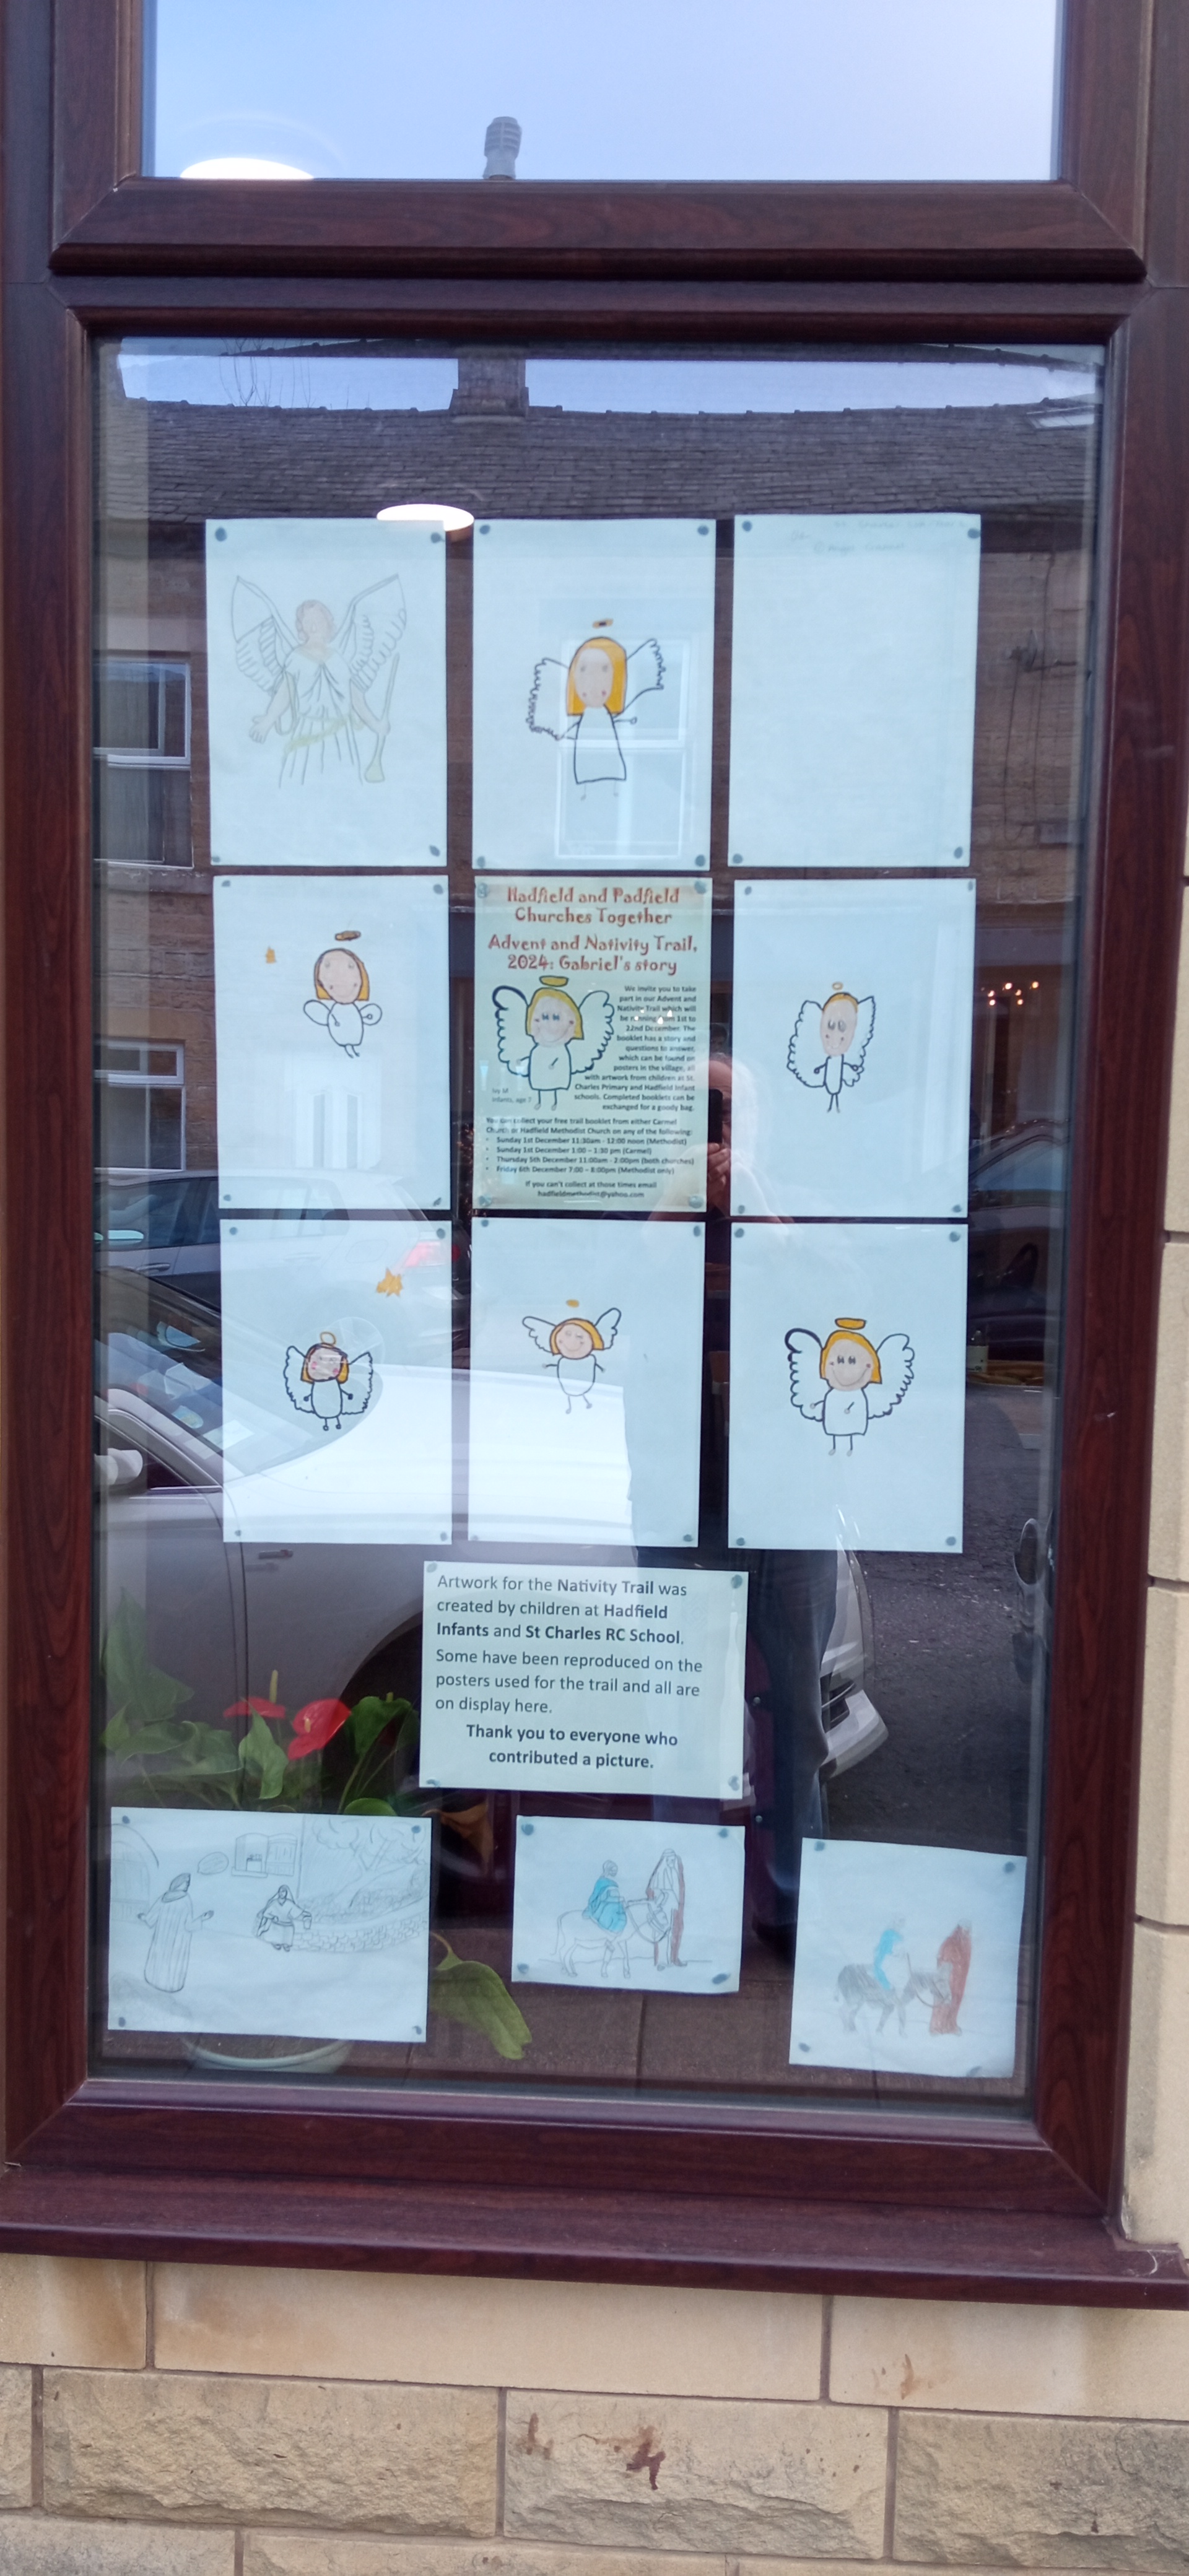 Angel Gabriel
Hadfield and Padfield
Churches Together
Advent and Nativity Trail,
2024: Gabriel's story
We invite you to take
part in our Advent and
Nativity Trail which will
be running from 1st to
22nd December. The
booklet has a story and
questions to answer,
which can be found on
posters in the village, all
with artwork from children at St.
Charles Primary and Hadfield Infant
schools. Completed booklets can be
exchanged for a goody bag.
Ivy M
Infants, age 7
You can collect your free trail booklet from either Carmel
Church or Hadfield Methodist Church on any of the following:
• Sunday 1st December 11:30am - 12:00 noon (Methodist)
• Sunday 1st December 1:00 – 1:30 pm (Carmel)
• Thursday 5th December 11:00am - 2:00pm (both churches)
• Friday 6th December 7:00 – 8:00pm (Methodist only)
If you can't collect at those times email
hadfieldmethodist@yahoo.com
Artwork for the Nativity Trail was
created by children at Hadfield
Infants and St Charles RC School.
Some have been reproduced on the
posters used for the trail and all are
on display here.
Thank you to everyone who
contributed a picture.